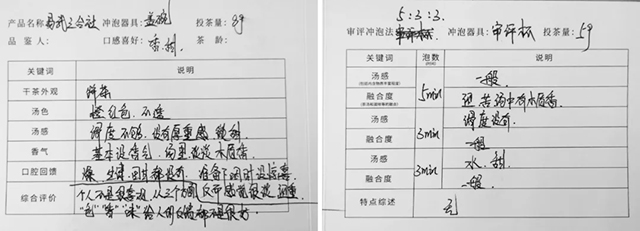 产品名称:易武三合社 冲泡器具:盖碗 投茶量:8g
品 鉴 人: 口感喜好:香,甜 茶 龄:
关键词 说明
干茶外观 饼茶
汤色 橙红色,不透
汤感 稠度不够,没有厚重感,
香气 基本没香气,汤里淡淡木质香
口腔回馈 燥,生津,回甘都没有,
综合评价 个人不是很喜欢,从三个方面反而感觉很淡,
"色""香""味"给人的反馈都不是很好
5:3:3.
审评冲泡法 冲泡器具:审评杯 投茶量:5g
关键词 泡数 说明
汤感
融合度
5min
一般
还苦汤中有木质香
汤感
融合度
3min
稠度没有
一般
汤感
融合度
3min
水,甜
一般
特点综述 无